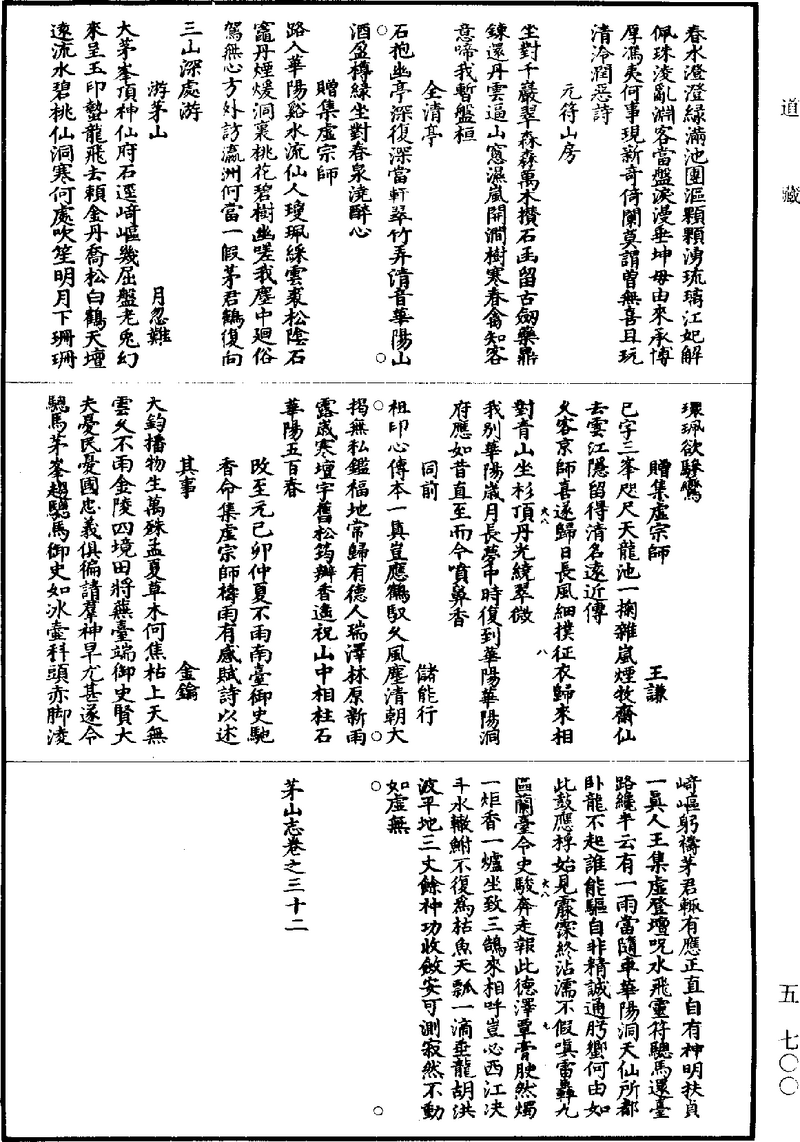 道藏
春水澄澄綠滿池團漚顆顆湧琉璃江妃解
佩珠凌亂淵客當盤淚漫垂坤毋由來承博
厚馮夷何事現新奇倚闌莫謂曾無喜且玩
清泠潤惡詩
元符山房
坐對千巖翠森森萬木攢石函留古劒藥鼎
鍊還丹雲逼山窻濕嵐開澗樹寒春禽知客
意啼我暫盤桓
全清亭
石抱幽亭深復深當軒翠竹弄清音華陽山
酒盈樽綠坐對春泉澆醉心
贈集虛宗師
路入華陽谿水流仙人瓊珮綵雲裘松陰石
竈丹煙煖洞裏桃花碧樹幽嗟我塵中廻俗
駕無心方外訪瀛洲何當一假茅君鶴復向
三山深處游
游茅山 月忽難
大茅峯頂神仙府石逕﨑嶇幾屈盤老兎幻
來呈玉印蟄龍飛去頼金丹喬松白鶴天壇
遠流水碧桃仙洞寒何處吹笙明月下珊珊
環珮欲驂鸞
贈集虛宗師 王謙
已字三峯咫尺天龍池一掬雜嵐煙牧齋仙
去雲江隱留得清名遠近傳
久客京師喜遂歸日長風細撲征衣歸來相
對青山坐杉頂丹光繞翠微
我别華陽歲月長夢中時復到華陽華陽洞
府應如昔直至而今噴鼻香
同前 儲能行
祖印心傳本一真豈應鶴馭久風塵清朝大
揭無私鑑福地常歸有德人瑞澤林原新雨
露歲寒壇宇舊松筠辦香遙祝山中相柱石
華陽五百春
𣦸至元己卯仲夏不雨南臺御史馳
香命集虛宗師禱雨有感賦詩以述
其事 金鑰
大鈞播物生萬殊孟夏草木何焦枯上天無
雲久不雨金陵四境田將蕪臺端御史賢大
夫憂民憂國忠義俱徧請羣神旱尤甚遂令
驄馬茅峯趨驄馬御史如冰壺科頭赤脚淩
﨑嶇躬禱茅君輒有應正直自有神明扶貞
一真人王集虛登壇呪水飛靈符驄馬還臺
路纔半云有一雨當隨車華陽洞天仙所都
卧龍不起誰能驅自非精誠通肹蠁何由如
此鼓應桴始見霡霂終沾濡不假嗔雷轟九
區蘭臺令史駿奔走報此德澤覃膏腴然燭
一炬香一爐坐致三鵠來相呼豈必西江決
斗水轍鮒不復爲枯魚天瓢一滴垂龍胡洪
波平地三丈餘神功收斂安可測寂然不動
如虛無
茅山志卷之三十二
五 七〇〇